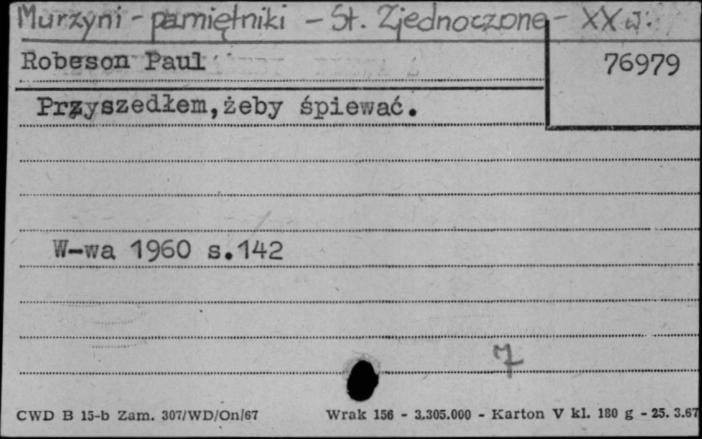 Murzyni - pamiętniki - St. Zjednoczone - XX w.
Robeson Paul
76979
Przyszedłem,żeby śpiewać.
W-wa 1960 s.142
7
CWD B 15-b Zam. 307/WD/On/67 Wrak 156 - 3.305.000 - Karton V kl. 180 g - 25. 3.67